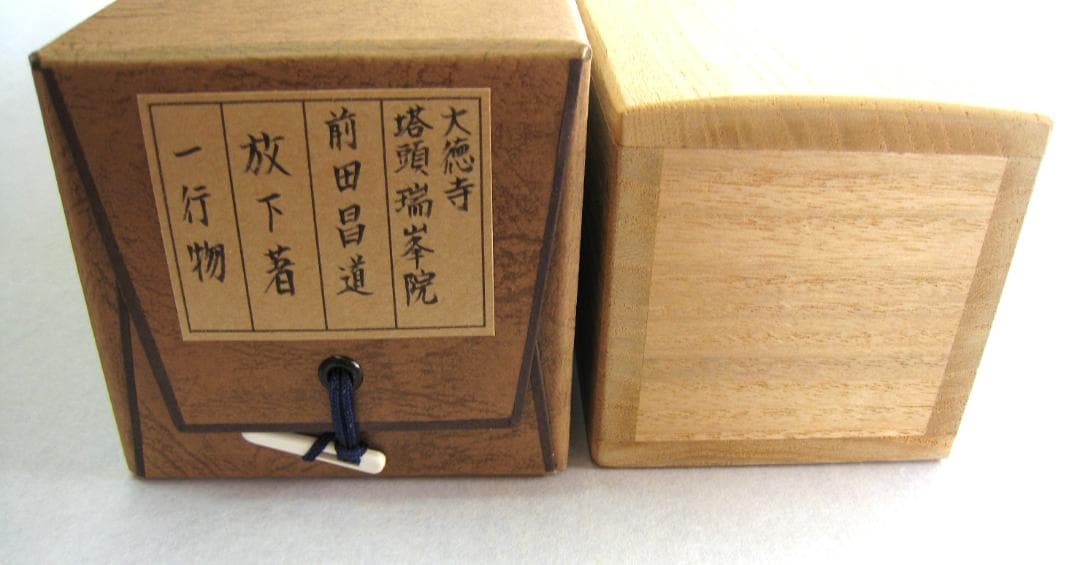 大徳寺
塔頭瑞峯院
前田昌道
放下著
一行物